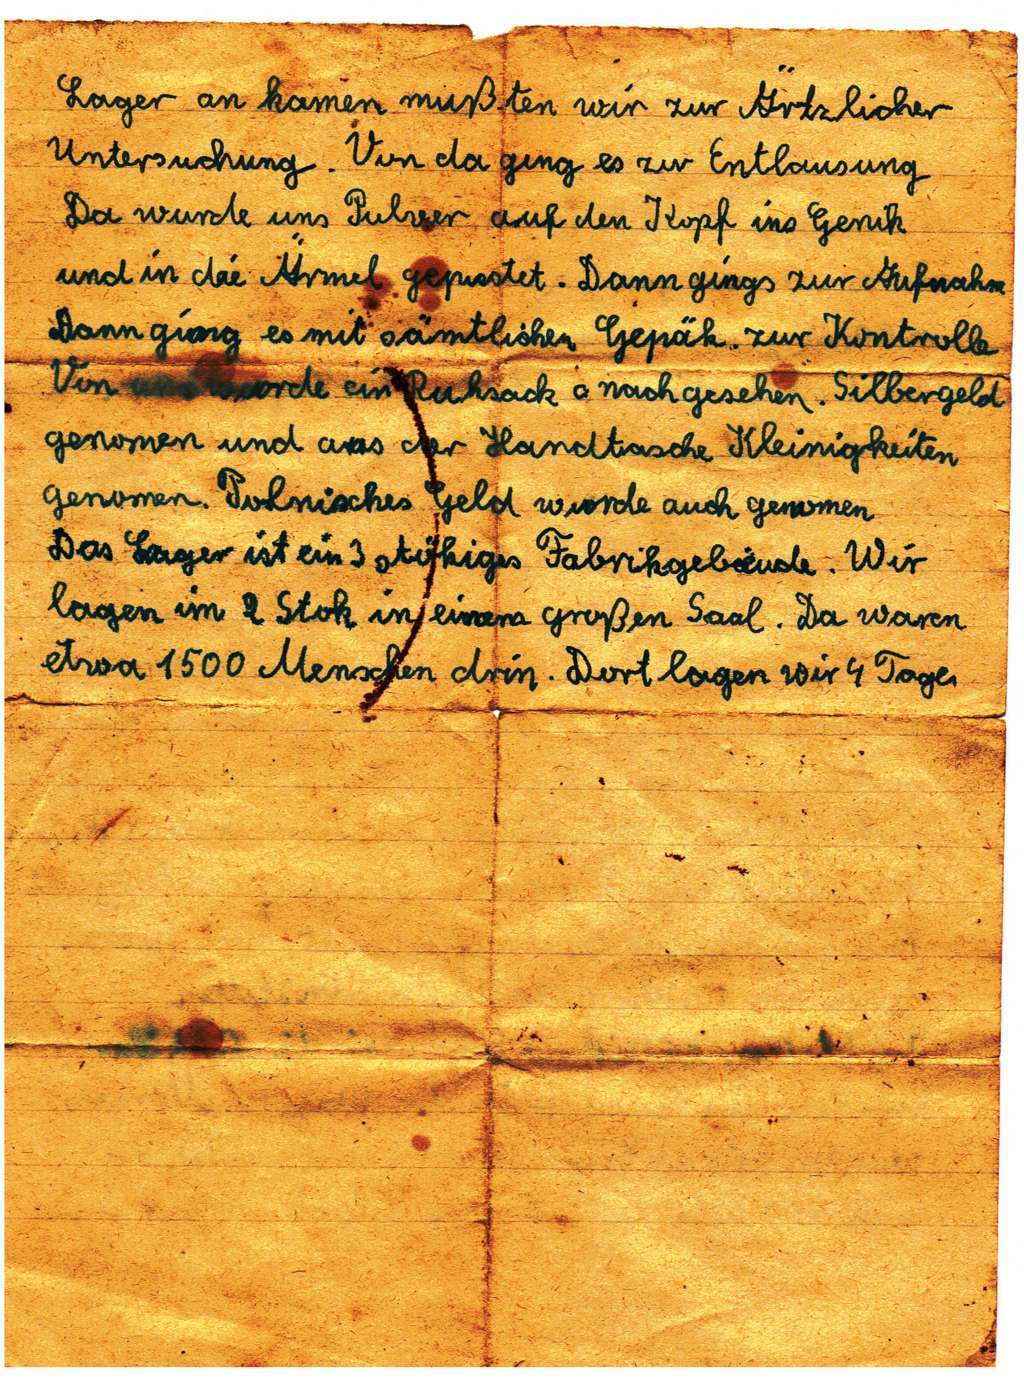 Lager an kamen mußten wir zur Ärtzlicher
Untersuchung. Von da ging es zur Entlausung
Da wurde uns Pulver auf den Kopf ins Genik
und in die Ärmel gepustet. Dann gings zur Aufnahm
Dann ging es mit sämtlichen Gepäk. zur Kontrolle
Von uns wurde ein Ruksack nachgesehen. Silbergeld
genomen und aus der Handtasche Kleinigkeiten
genomen. Polnisches Geld wurde auch genomen
Das Lager ist ein 3 stökiges Fabrikgebäude. Wir
lagen im 2 Stok in einem großen Saal. Da waren
etwa 1500 Menschen drin. Dort lagen wir 4 Tage